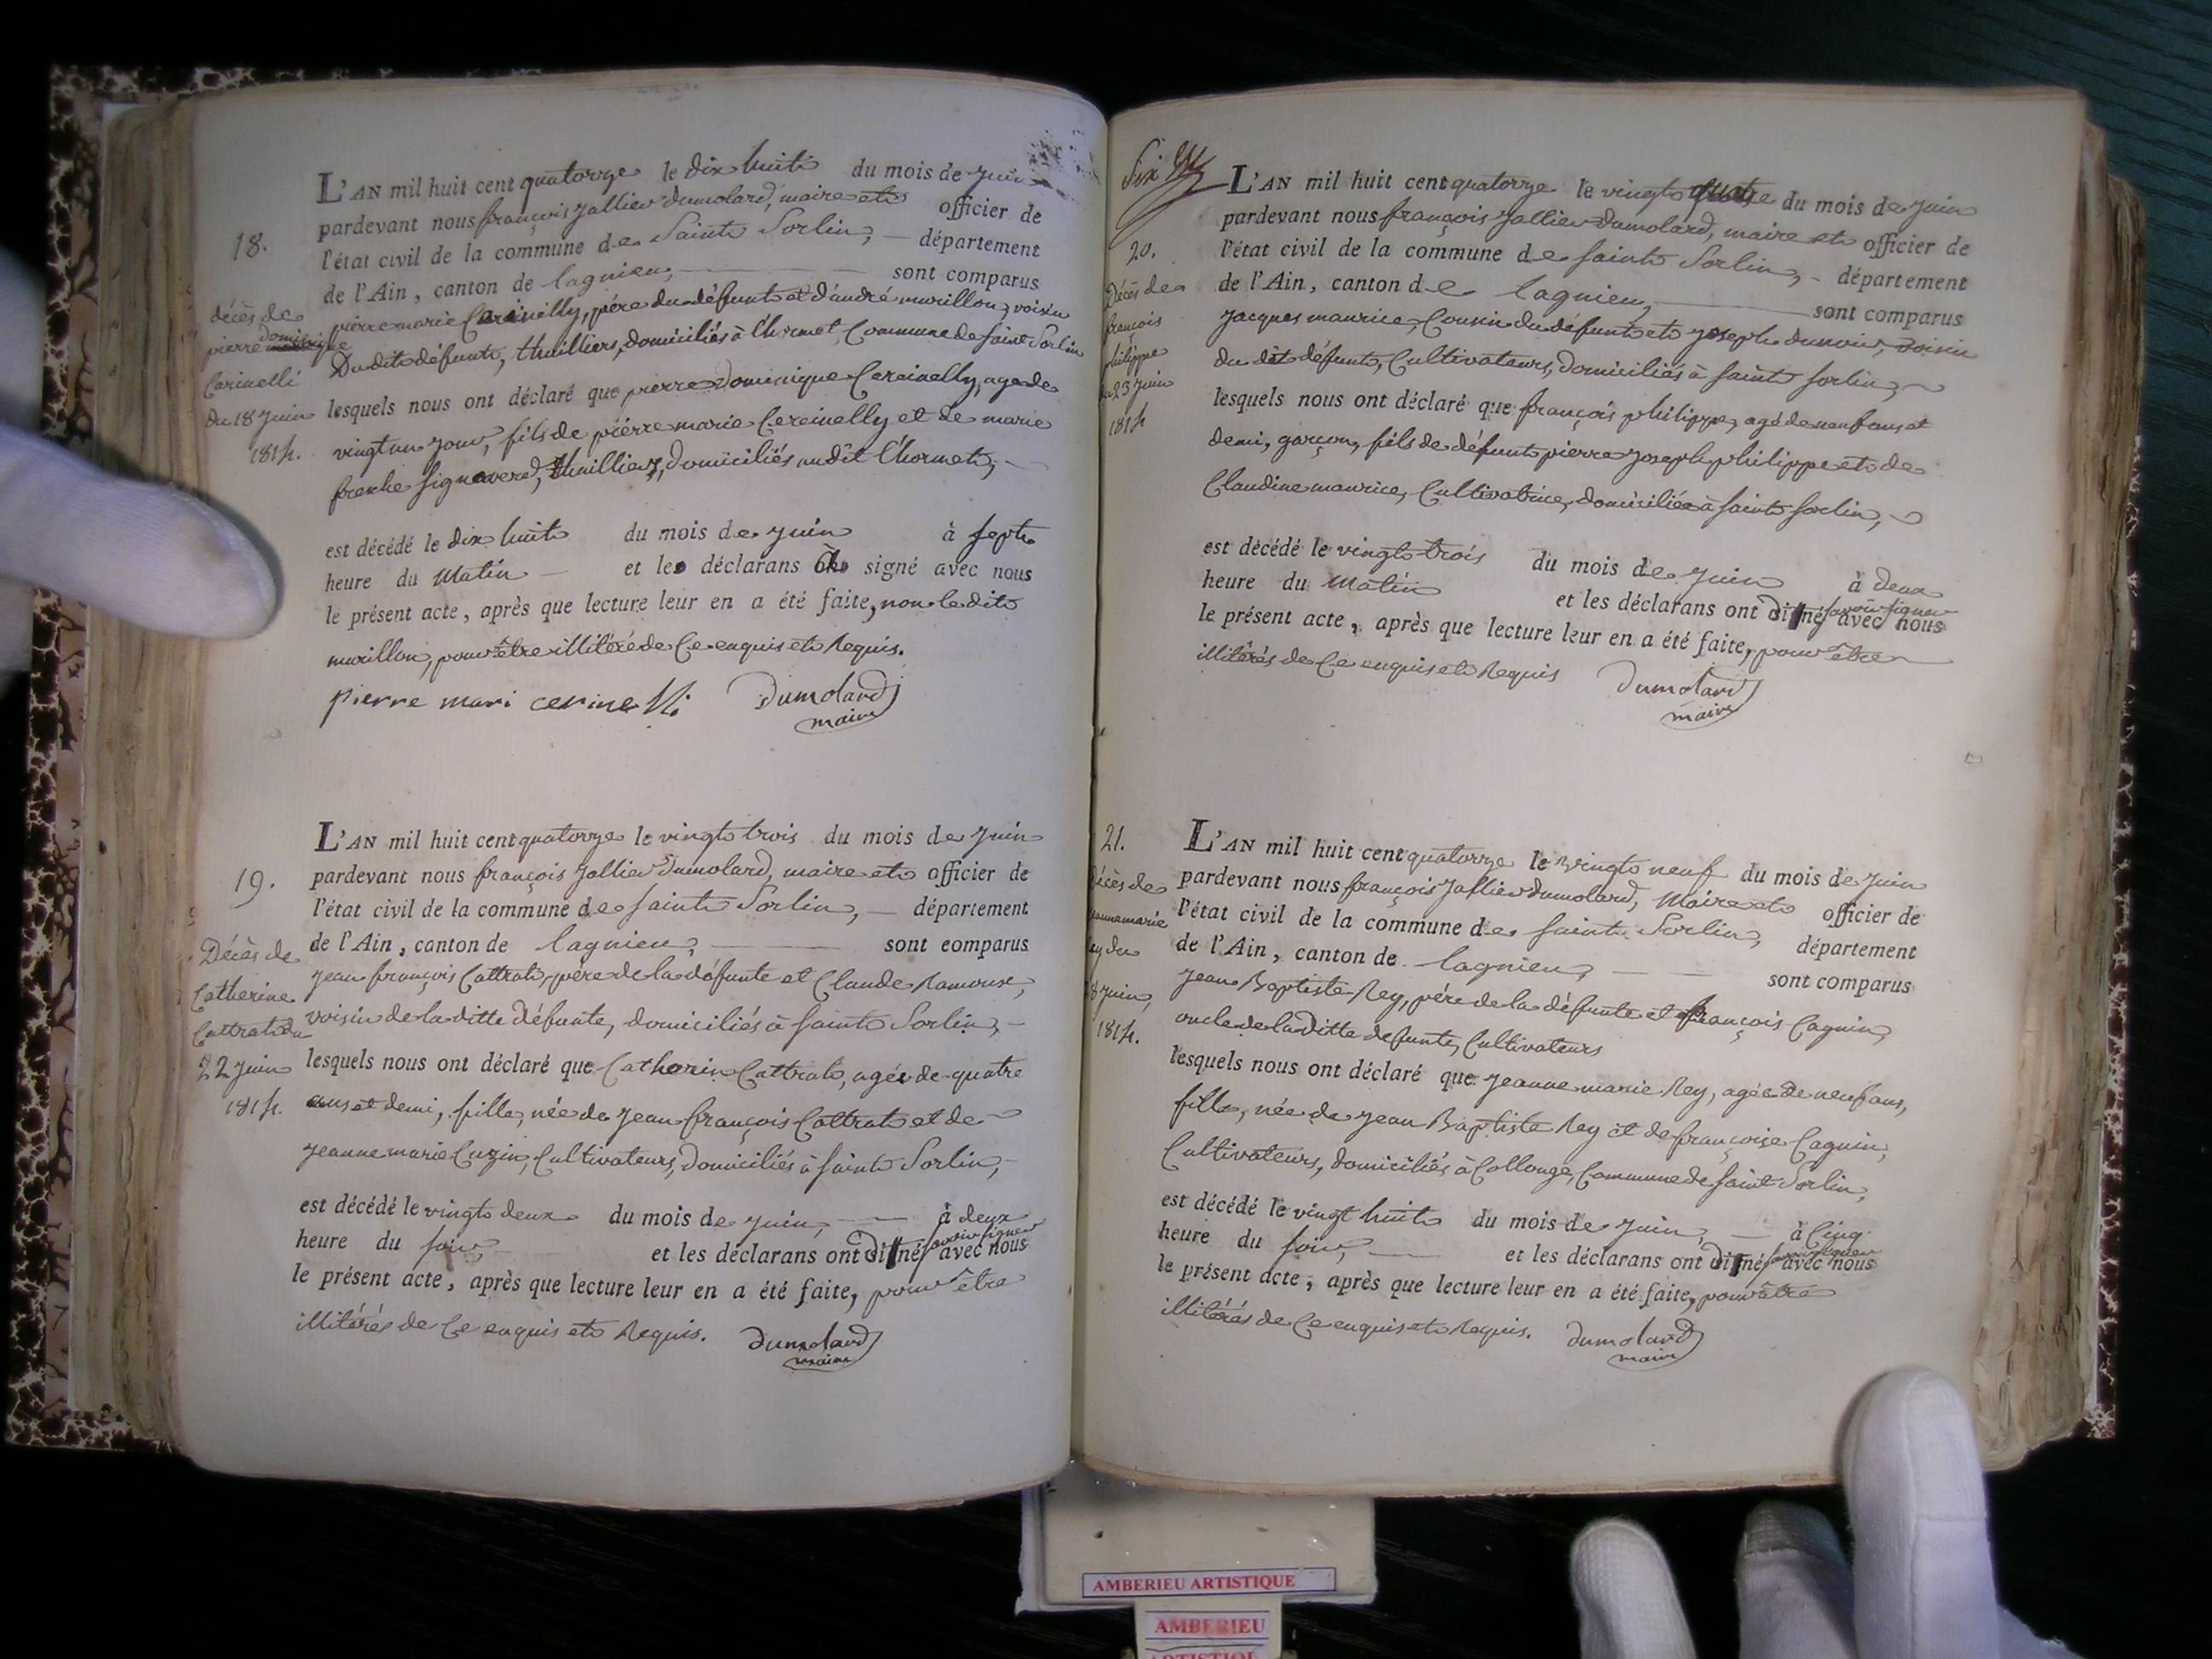 18.
décès de
pierre dominique
Carinelli
du 18 juin
1814.
L'AN mil huit cent quatorze le dix huit du mois de juin
pardevant nous françois Jallier Dumolard, maire et officier de
l'état civil de la commune de Saint Sorlin, département
de l'Ain, canton de lagnieu, sont comparus
pierre marie Carinelly, père du défunt et d'andré murillon, voisin
Du dit défunt, thuilliers, domiciliés à l'hormet, Commune de saint Sorlin
lesquels nous ont déclaré que pierre dominique Cereinelly, age de
vingt un jour, fils de pierre marie Cereinelly et de marie
thuilliers, domiciliés au dit l'hormet,
est décédé le dix huit du mois de juin à sept
heure du Matin et les déclarans signé avec nous
le présent acte, après que lecture leur en a été faite, non le dit
murillon, pour être illitéré de Ce enquis et Requis.
pierre mari cerinelli Dumolard
maire
19.
Décès de
Catherine
Cattrat du
22 juin
1814.
L'AN mil huit cent quatorze le vingt trois du mois de juin
pardevant nous françois Jallier Dumolard, maire et officier de
l'état civil de la commune de saint Sorlin, département
de l'Ain, canton de lagnieu, sont comparus
jean françois Cattrat, père de la défunte et Claude Ramouse,
voisin de la ditte défunte, domiciliés à saint Sorlin,
lesquels nous ont déclaré que Catherin Cattrat, agée de quatre
ans et demi, fille, née de jean françois Cattrat et de
jeanne marie Cuzin, Cultivateurs, domiciliés à saint Sorlin,
est décédé le vingt deux du mois de juin, à deux
heure du soir, et les déclarans ont dit né savoir signer avec nous
le présent acte, après que lecture leur en a été faite, pour être
illitérés de Ce enquis et Requis. Dumolard
maire
Six
20.
Décès de
françois
philippe
du 23 juin
1814
L'AN mil huit cent quatorze le vingt quatre du mois de juin
pardevant nous françois Jallier Dumolard, maire et officier de
l'état civil de la commune de saint Sorlin, département
de l'Ain, canton de lagnieu, sont comparus
jacques maurice, Cousin du défunt et joseph dunoir, voisin
du dit défunt, Cultivateurs, domiciliés à saint sorlin,
lesquels nous ont déclaré que françois philippe, agé de neuf ans et
demi, garçon, fils de défunt pierre joseph philippe et de
Claudine maurice, Cultivatrice, domiciliée à saint sorlin,
est décédé le vingt trois du mois de juin à deux
heure du matin et les déclarans ont dit né savoir signer avec nous
le présent acte, après que lecture leur en a été faite, pour être
illitérés de Ce enquis et Requis Dumolard
maire
21.
Décès de
jeanne marie
Rey du
28 juin,
1814.
L'AN mil huit cent quatorze le vingt neuf du mois de juin
pardevant nous françois Jallier Dumolard, Maire et officier de
l'état civil de la commune de saint Sorlin, département
de l'Ain, canton de lagnieu, sont comparus
jean Baptiste Rey, père de la défunte et françois Cagnin,
oncle de la ditte defunte, Cultivateurs
lesquels nous ont déclaré que jeanne marie Rey, agée de neuf ans,
fille, née de jean Baptiste Rey et de françoise Cagnin,
Cultivateurs, domiciliés à Collonge, Commune de saint Sorlin,
est décédé le vingt huit du mois de juin, à Cinq
heure du soir, et les déclarans ont dit né savoir signer avec nous
le présent acte, après que lecture leur en a été faite, pour être
illitérés de Ce enquis et Requis. Dumolard
maire
AMBERIEU ARTISTIQUE
AMBERIEU
ARTISTIQUE